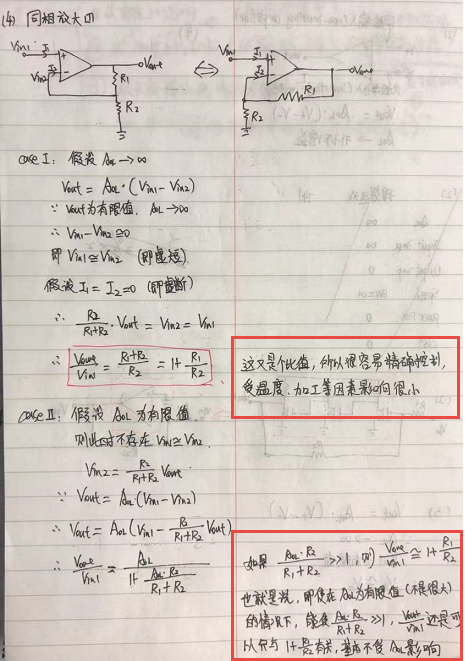 (4) 同相放大
Vin1 I1 + Vout
Vin2 - R1
R2
⇔
Vin1 I1 + Vout
I2 - R1
R2
case I: 假设 AOL → ∞
Vout = AOL·(Vin1 - Vin2)
∵ Vout为有限值, AOL → ∞
∴ Vin1 - Vin2 ≅ 0
即 Vin1 ≅ Vin2 (即虚短)
假设 I1 = I2 = 0 (即虚断)
∴ R2/(R1+R2) · Vout = Vin2 = Vin1
∴ Vout/Vin1 = (R1+R2)/R2 = 1 + R1/R2
这又是个比值, 所以很容易精确控制,
受温度、加工等因素影响很小
case II: 假设 AOL 为有限值
则此时不存在 Vin1 ≅ Vin2.
Vin2 = R2/(R1+R2) Vout
∵ Vout = AOL(Vin1 - Vin2)
∴ Vout = AOL(Vin1 - R2/(R1+R2) Vout)
∴ Vout/Vin1 = AOL/(1 + AOL·R2/(R1+R2))
如果 AOL·R2/(R1+R2) >> 1, 则 Vout/Vin1 ≅ 1 + R1/R2
也就是说, 即使在 AOL为有限值 (不是很大)
的情况下, 能使 AOL·R2/(R1+R2) >> 1, Vout/Vin1 还是可
以只与 1 + R1/R2 有关, 基本不受 AOL影响